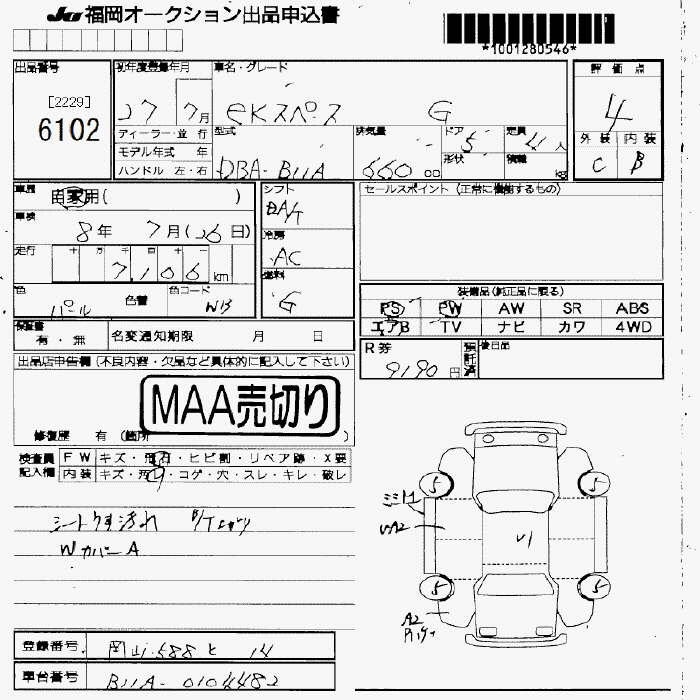 JU 福岡オークション出品申込書
*1001280546*
出品番号 初年度登録年月 車名・グレード 評価点
[2229]
6102
27 7月 eKスペース G 4
ディーラー・並行 型式 排気量 ドア 定員 外装 内装
モデル年式 年 5 4人
ハンドル 左・右 DBA-B11A 660cc 形状 積載 kg C B
車歴 自家用( ) シフト セールスポイント (正常に機能するもの)
車検 8年 7月(26日) AT
走行 十 万 千 百 十 冷房
7,106km AC
色 パール 色替 色コード W13 燃料 G
装備品(純正品に限る)
PS PW AW SR ABS
エアB TV ナビ カワ 4WD
保証書 有・無 名変通知期限 月 日
R券 9190円 預託済 後日品
出品店申告欄 (不良内容・欠品など具体的に記入して下さい)
MAA売切り
修復歴 有 (箇所 )
検査員 FW キズ・飛石・ヒビ割・リペア跡・X要
記入欄 内装 キズ・汚レ・コゲ・穴・スレ・キレ・破レ
シートウす汚れ
WカバーA
5 5
ミラー
A2
U1
5 5
A2
登録番号 岡山 588 と 14
車台番号 B11A-0104482